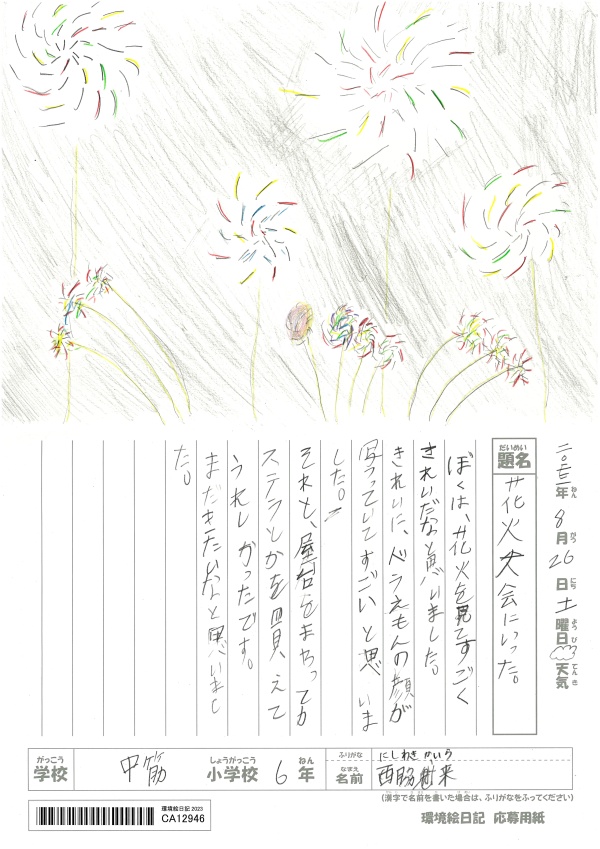 二〇二三年8月26日土曜日天気
ねん がつ にち ようび てんき
だいめい
題名 花火大会にいった。
ぼくは、花火を見てすごく
きれいだなと思いました。
きれいに、ドラえもんの顔が
写っていてすごいと思いま
した。
それと、屋台もまわってカ
ステラとかを買えて
うれしかったです。
またきたいなと思いまし
た。
がっこう しょうがっこう ねん
学校 中筋 小学校 6年
ふりがな にしわき かいら
なまえ
名前 西脇 来
(漢字で名前を書いた場合は、ふりがなをふってください)
環境絵日記 応募用紙
環境絵日記 2023
CA12946